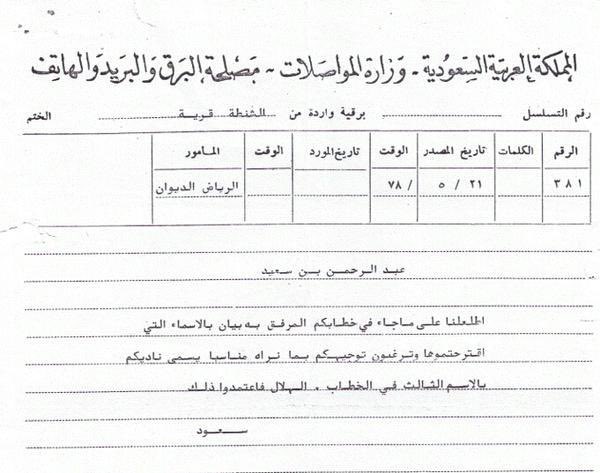 المملكة العربية السعودية - وزارة المواصلات - مصلحة البرق والبريد والهاتف
رقم التسلسل برقية واردة من الشنطة قرية الختم
الرقم الكلمات تاريخ المصدر الوقت تاريخ المورد الوقت المامور
٣٨١ ٢١ / ٥ / ٧٨ الرياض الديوان
عبد الرحمن بن سعيد
اطلعلنا على ماجاء في خطابكم المرفق به بيان بالاسماء التي
اقترحتموها وترغبون توجيهكم بما نراه مناسبا يسمى ناديكم
بالاسم الثالث في الخطاب . الهلال فاعتمدوا ذلك
سعود